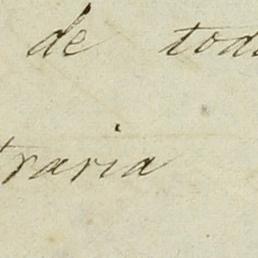 de tod
traria